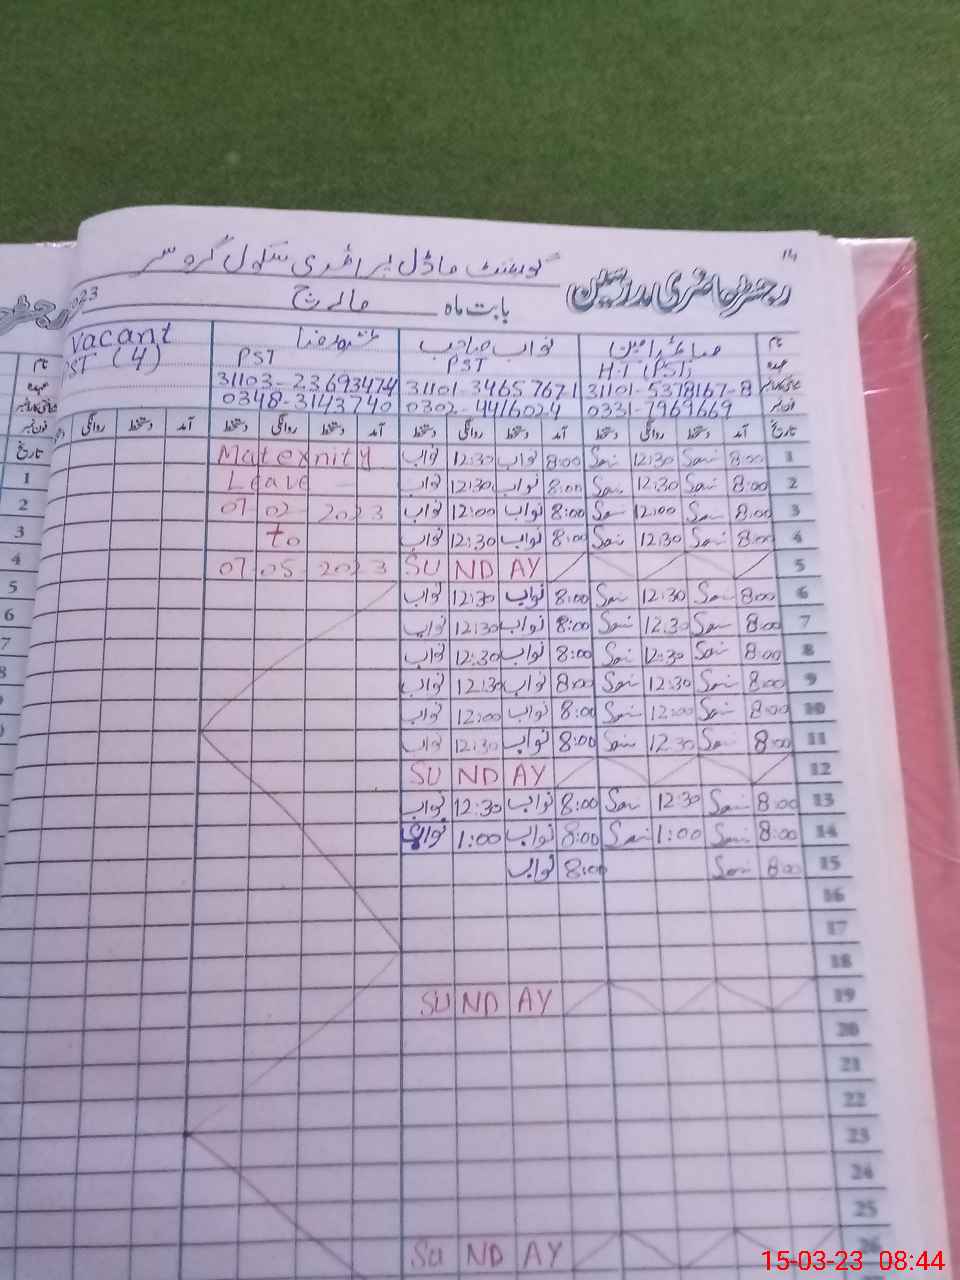 14
رجسٹر حاضری مدرسین
گورنمنٹ ماڈل پرائمری سکول
بابت ماہ مارچ 2023
نام
عہدہ
H.T (PST)
نواب صاحب
PST
PST
vacant
PST (4)
31101-5378167-8
31101-34657671
31103-23693474
0331-7969669
0302-4416024
0348-3143740
تاریخ آمد دستخط روانگی دستخط آمد دستخط روانگی دستخط آمد دستخط روانگی دستخط آمد دستخط روانگی
1 8:00 12:30 8:00 نواب 12:30 نواب Maternity
2 8:00 12:30 8:00 نواب 12:30 نواب Leave
3 8:00 12:00 8:00 نواب 12:00 نواب 07 02 2023
4 8:00 12:30 8:00 نواب 12:30 نواب to
5 SUNDAY 07-05-2023
6 8:00 12:30 8:00 نواب 12:30 نواب
7 8:00 12:30 8:00 نواب 12:30 نواب
8 8:00 12:30 8:00 نواب 12:30 نواب
9 8:00 12:30 8:00 نواب 12:30 نواب
10 8:00 12:00 8:00 نواب 12:00 نواب
11 8:00 12:30 8:00 نواب 12:30 نواب
12 SUNDAY
13 8:00 12:30 8:00 نواب 12:30 نواب
14 8:00 1:00 8:00 نواب 1:00 نواب
15 8:00 8:00 نواب
16
17
18
19 SUNDAY
20
21
22
23
24
25
26 SUNDAY
نام
تاریخ
1
2
3
4
5
6
7
8
15-03-23 08:44